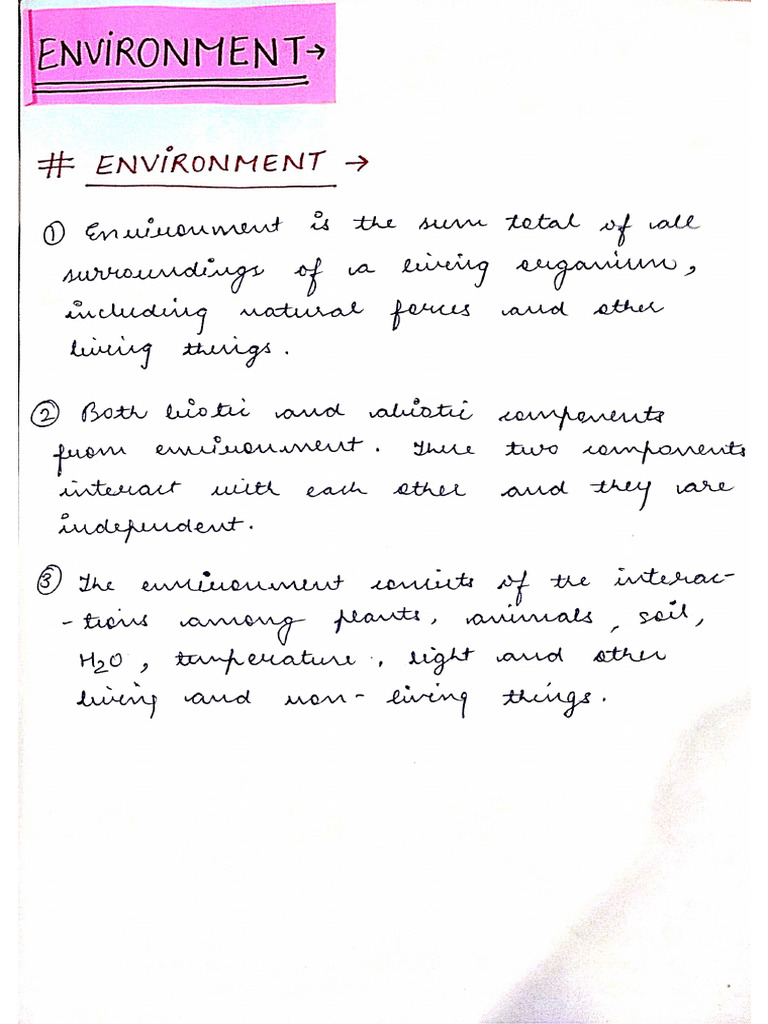 ENVIRONMENT→
# ENVIRONMENT →
① Environment is the sum total of all
surroundings of a living organism,
including natural forces and other
living things.
② Both biotic and abiotic components
from environment. These two components
interact with each other and they are
independent.
③ The environment consists of the interac-
-tions among plants, animals, soil,
H₂O, temperature, light and other
living and non-living things.